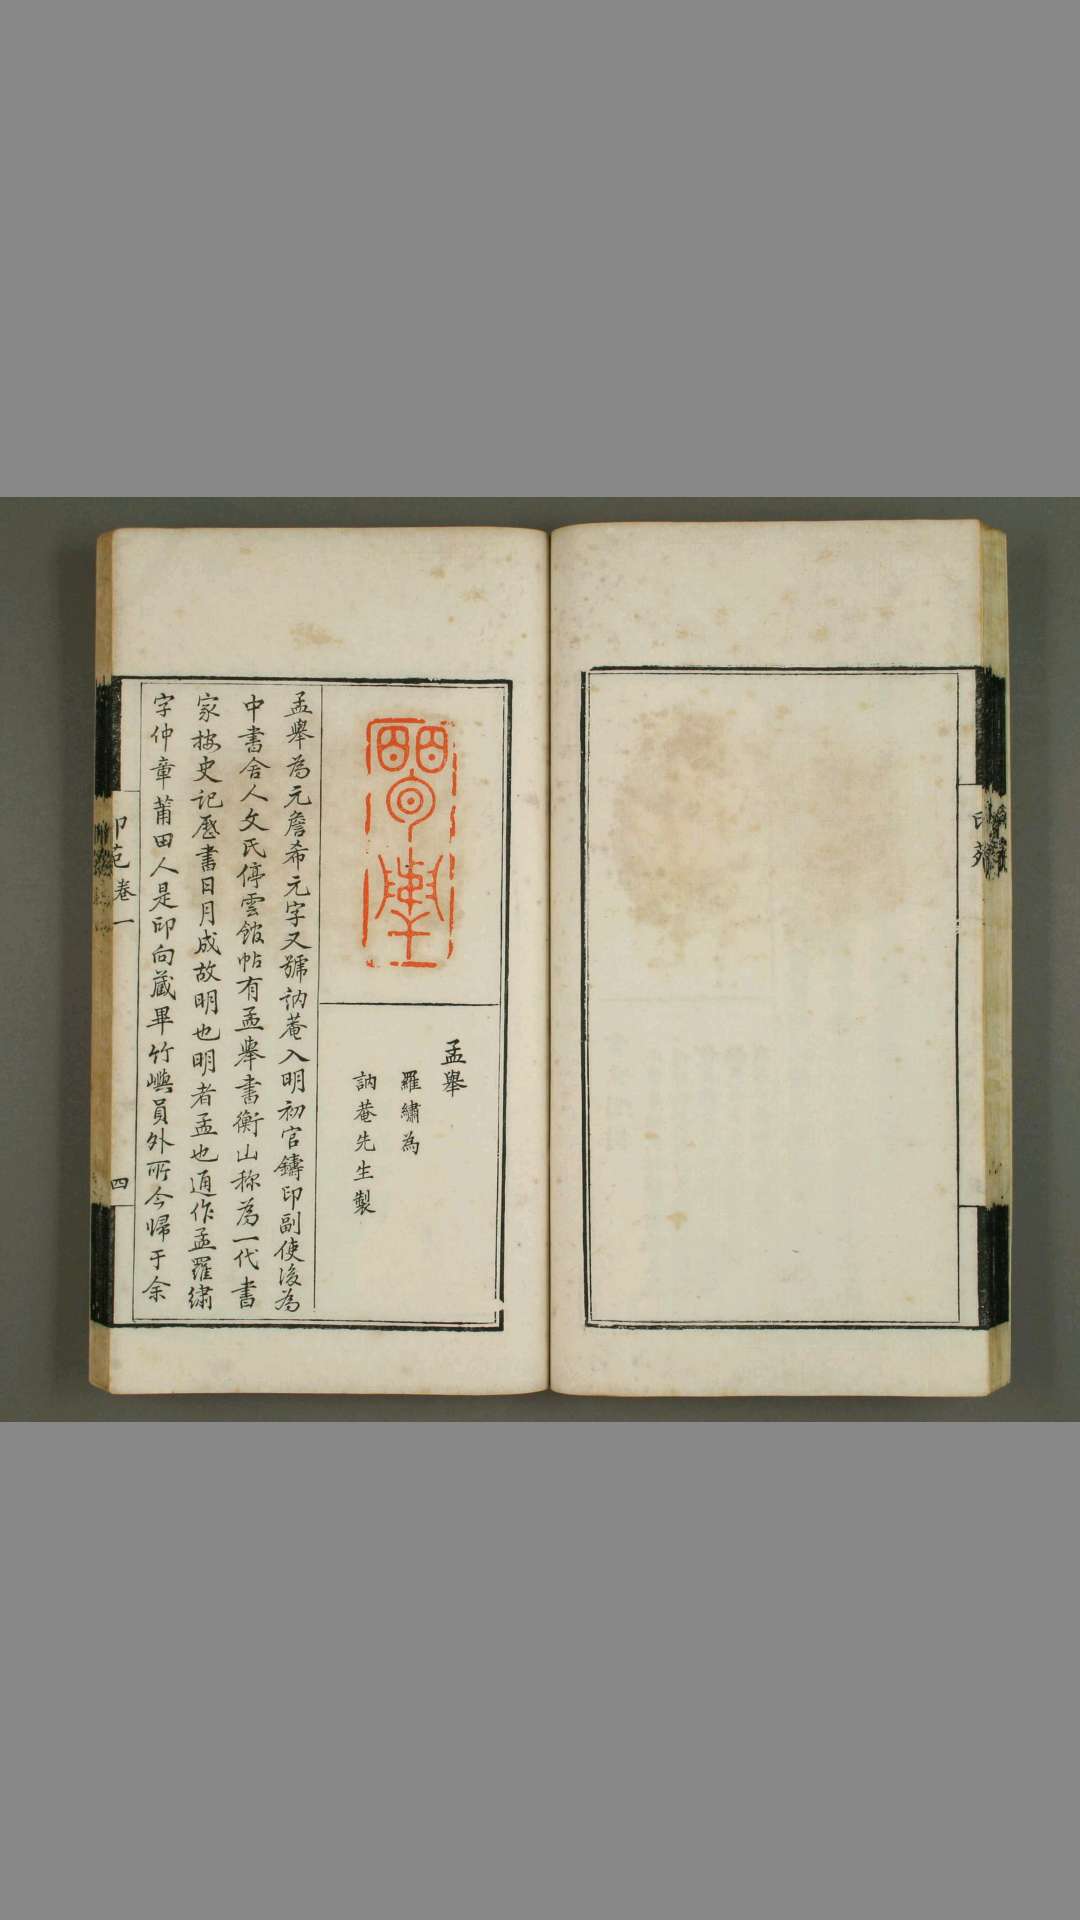 印苑
孟舉
羅繡為
訥菴先生製
孟舉為元詹希元字又號訥菴入明初官鑄印副使後為
中書舍人文氏停雲館帖有孟舉書衡山稱為一代書
家按史記歷書日月成故明也明者孟也通作孟羅繡
字仲章莆田人是印向藏畢竹嶼員外所今歸于余
印苑卷一
四